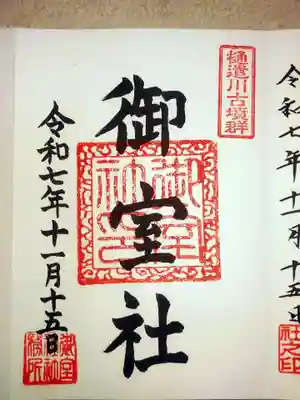 樋遣川古墳群
御室社
御室社之印
令和七年十一月十五日
御室社社務所
令和七年十一月十五日
社之印